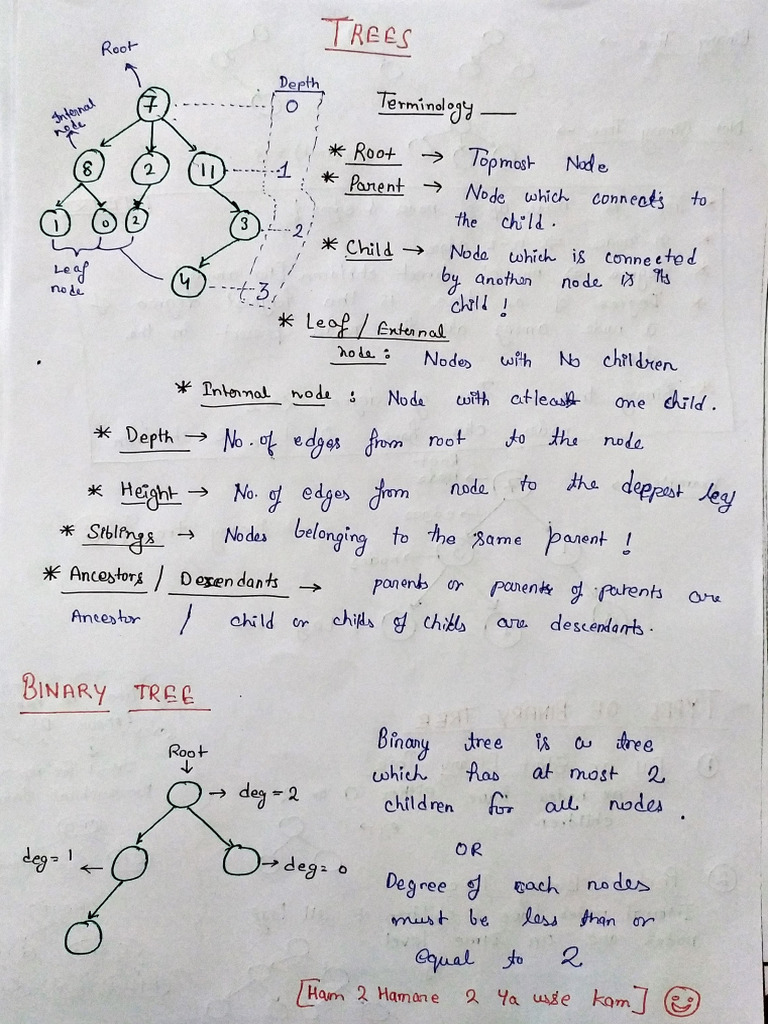 TREES
Root
Depth
7
0
Terminology
Internal
node
8
2
11
1
* Root → Topmost Node
* Parent → Node which connects to
the child.
1
0
2
3
2
* Child → Node which is connected
by another node is its
child!
Leaf
node
4
3
* Leaf / External
node: Nodes with No children
* Internal node: Node with atleast one child.
* Depth → No. of edges from root to the node
* Height → No. of edges from node to the deppest leaf
* Siblings → Nodes belonging to the same parent!
* Ancestors / Descendants → parents or parents of parents are
Ancestor / child or childs of childs are descendants.
BINARY TREE
Root
→ deg = 2
deg = 1 ←
→ deg = 0
Binary tree is a tree
which has at most 2
children for all nodes.
OR
Degree of each nodes
must be less than or
equal to 2
[Ham 2 Hamare 2 Ya usse kam]